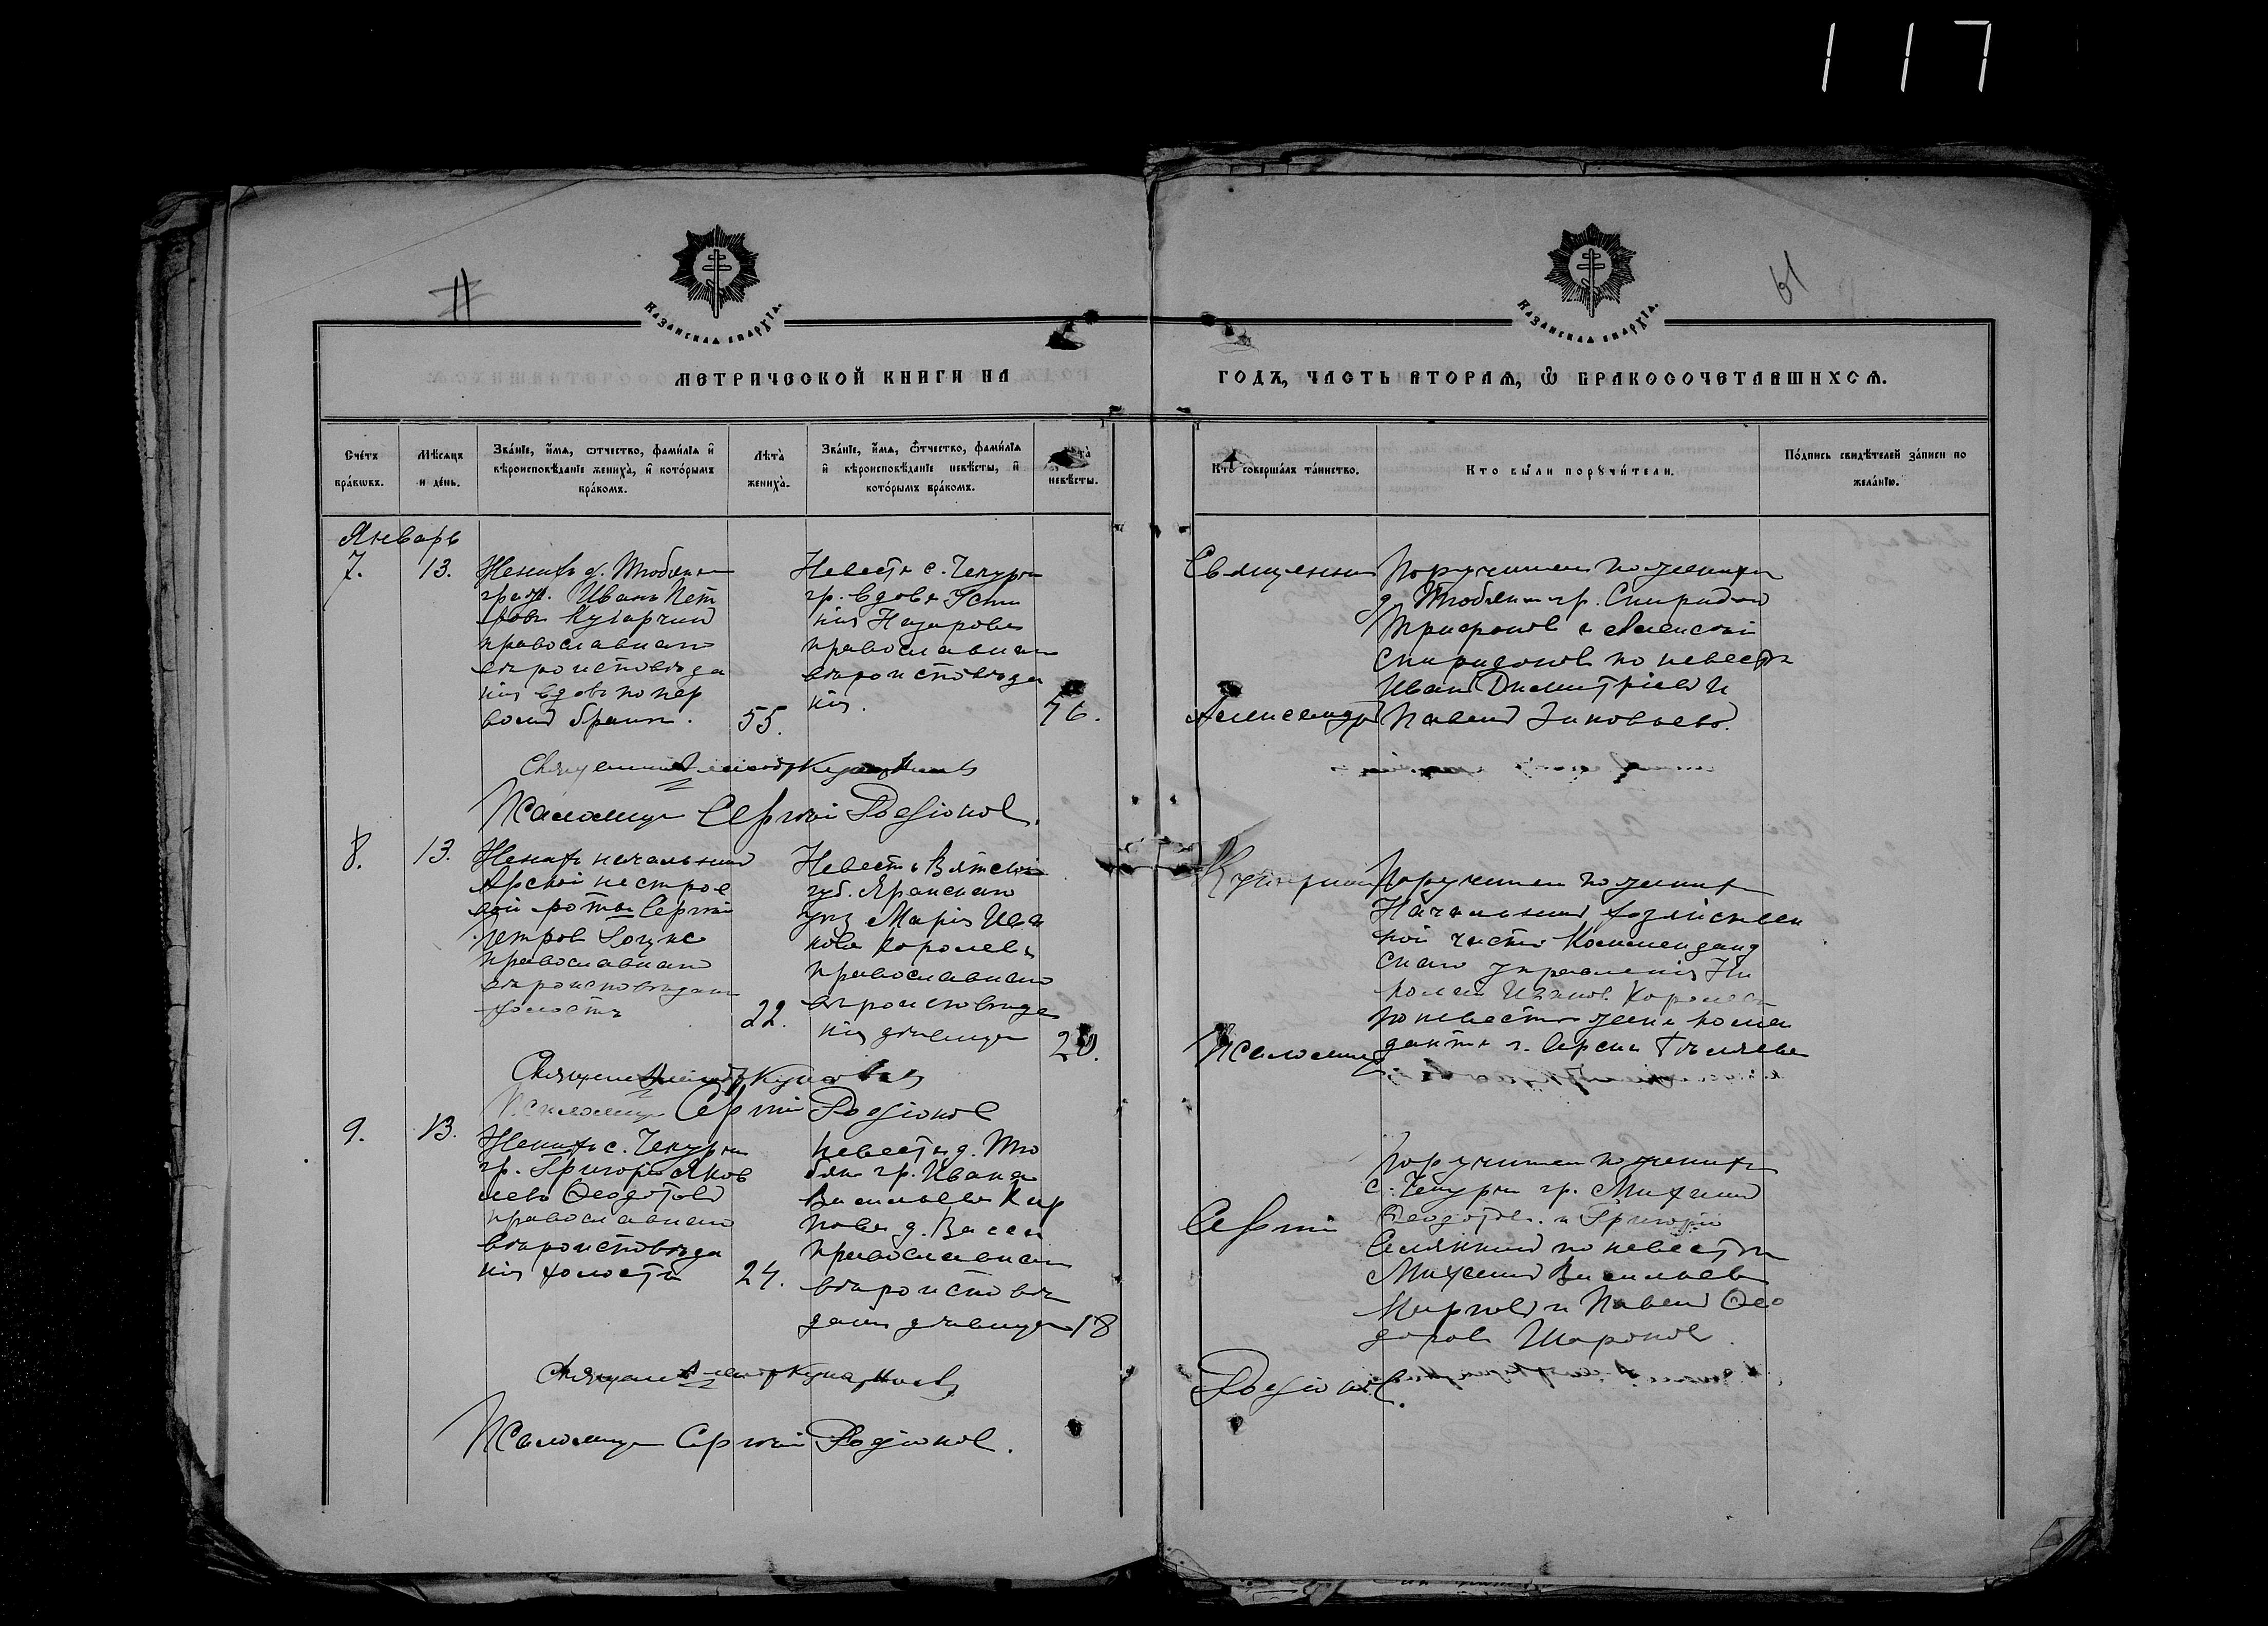 117
61
КАЗАНСКАѦ ЕПАРХІѦ.
КАЗАНСКАѦ ЕПАРХІѦ.
МЕТРИЧЕСКОЙ КНИГИ НА
ГОДЪ, ЧАСТЬ ВТОРАѦ, Ѡ БРАКОСОЧЕТАВШИХСѦ.
Сче́тъ бра́кѡвъ.
Мѣ́сяцъ и де́нь.
Зва́нїе, и҆́мѧ, ѻтчество, фами́лїѧ и҆ вѣроисповѣ́данїе жениха̀, и҆ кото́рымъ бра́комъ.
Лѣ́та жениха̀.
Зва́нїе, и҆́мѧ, ѻтчество, фами́лїѧ и҆ вѣроисповѣ́данїе невѣ́сты, и҆ кото́рымъ бра́комъ.
Лѣ́та невѣ́сты.
Кто̀ соверша́лъ та́инство.
Кто бы́ли порꙋчи́тели.
По́дпись свидѣ́телей за́писи по жела́нїю.
Январь
7.
13.
Женихъ д.
гражд. Иванъ Пет
ровъ
православнаго
вѣроисповѣда
нія вдовъ по пер
вомъ бракѣ.
55.
Невеста с. Чекурчи
гр. вдова Усти
нія Назарова
православнаго
вѣроисповѣда
нія.
56.
Священникъ
Александръ
Поручители по женихѣ
гр. Спиридонъ
Трифоновъ и Алексей
Спиридоновъ по невестѣ
Иванъ Димитріевъ и
Павелъ Зиновьевъ.
Священникъ Александръ
Псаломщикъ Сергій Родіонов.
8.
13.
Женихъ начальник
Арской нестрое
вой роты Сергій
Петров
православнаго
вѣроисповѣдан
холостъ
22.
Невеста Вятской
губ. Яранскаго
уѣз Марія Ива
нова Королева
православнаго
вѣроисповѣда
нія дѣвица
20.
Псаломщикъ
Поручители по женихѣ
Начальник хозяйствен
ной части Коммендант
скаго управленія Ни
колай Иванов Королев
по невестѣ жена комен
данта г. Арска
Священник Александръ
Псаломщик Сергій Родіонов
9.
13.
Женихъ с. Чекурчи
гр. Григорій Яков
левъ Ѳеодотовъ
православнаго
вѣроисповѣда
нія холостъ
24.
Невеста д.
гр. Ивана
Васильева Кир
пова д.
православнаго
вѣроисповѣ
данія дѣвица 18
Сергій
Родіонов.
Поручители по женихѣ
с. Чекурчи гр. Михаилъ
Ѳеодотов. и Григорій
по невестѣ
Михаилъ Васильевъ
и Павелъ Ѳео
доровъ Шаронов.
Священник Александръ
Псаломщик Сергій Родіонов.